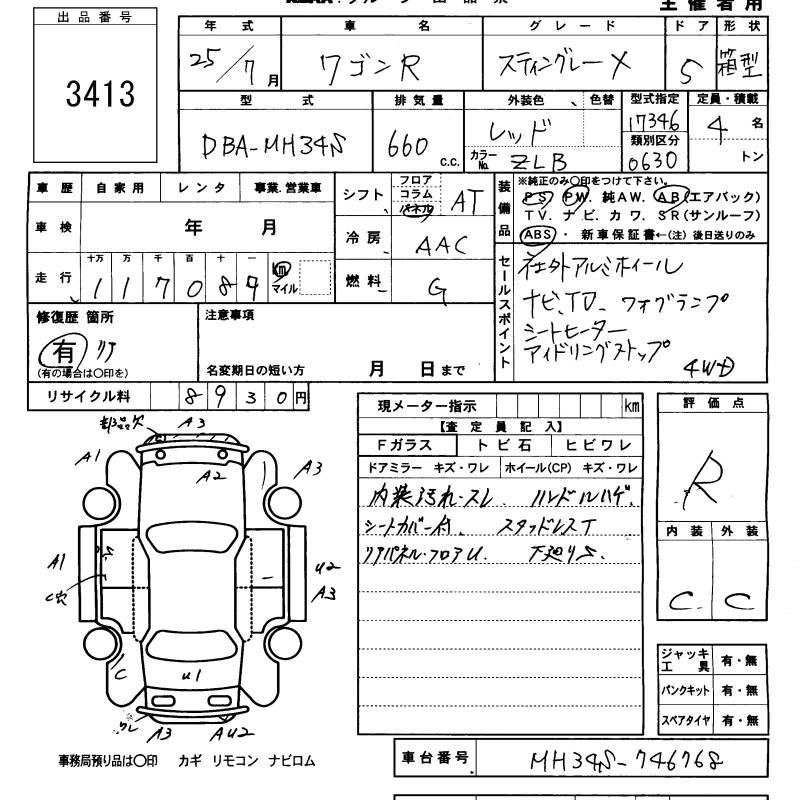 主催者用
出品番号
3413
年式 車名 グレード ドア 形状
25/7月 ワゴンR スティングレーX 5 箱型
型式 排気量 外装色 色替 型式指定 定員・積載
DBA-MH34S 660 c.c. レッド 17346 4名
カラーNo. ZLB 類別区分 0630 トン
車歴 自家用 レンタ 事業.営業車
車検 年 月
走行 十万 万 千 百 十 一
117089 km マイル
シフト フロア コラム パネル AT
冷房 AAC
燃料 G
装備品 ※純正のみ〇印をつけて下さい。
PS PW. 純AW. AB(エアバック)
TV. ナビ. カワ. SR(サンルーフ)
ABS ・ 新車保証書←(注) 後日送りのみ
セールスポイント
社外アルミホイール
ナビ、TV フォグランプ
シートヒーター
アイドリングストップ
4WD
修復歴 箇所
有 リア
(有の場合は〇印を)
注意事項
名変期日の短い方 月 日まで
リサイクル料 8930円
現メーター指示 km
【査定員記入】
Fガラス トビ石 ヒビワレ
ドアミラー キズ・ワレ ホイール(CP) キズ・ワレ
内装汚れ・スレ ハンドルハゲ.
シートカバー付. スタッドレスT
リアパネル・フロアU. 下廻りS.
評価点
R
内装 外装
C C
部品欠 A3
A1 A2 A3
A1 U2
C穴 A3
C U1
ワレ A3 AU2
ジャッキ工具 有・無
パンクキット 有・無
スペアタイヤ 有・無
事務局預り品は〇印 カギ リモコン ナビロム
車台番号 MH34S-746768